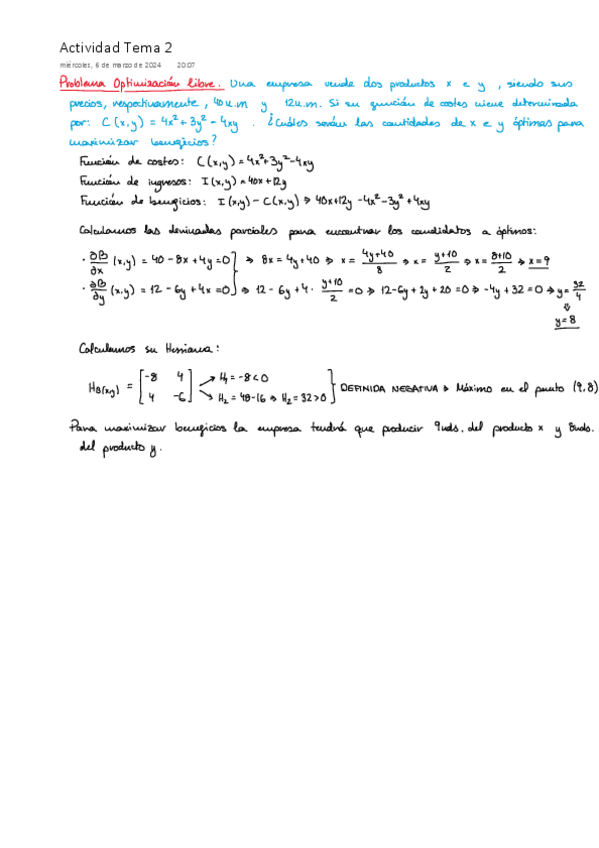 Actividad Tema 2
miércoles, 6 de marzo de 2024 20:07
Problema Optimización libre. Una empresa vende dos productos x e y, siendo sus
precios, respectivamente, 40 u.m y 12 u.m. Si su función de costes viene determinada
por: C(x,y) = 4x² + 3y² - 4xy. ¿Cuáles serán las cantidades de x e y óptimas para
maximizar beneficios?
Función de costos: C(x,y) = 4x² + 3y² - 4xy
Función de ingresos: I(x,y) = 40x + 12y
Función de beneficios: I(x,y) - C(x,y) ⇒ 40x + 12y - 4x² - 3y² + 4xy
Calculamos las derivadas parciales para encontrar los candidatos a óptimos:
· ∂B/∂x (x,y) = 40 - 8x + 4y = 0 } ⇒ 8x = 4y + 40 ⇒ x = (4y+40)/8 ⇒ x = (y+10)/2 ⇒ x = (8+10)/2 ⇒ x = 9
· ∂B/∂y (x,y) = 12 - 6y + 4x = 0 } ⇒ 12 - 6y + 4 · (y+10)/2 = 0 ⇒ 12 - 6y + 2y + 20 = 0 ⇒ -4y + 32 = 0 ⇒ y = 32/4
⇓
y = 8
Calculamos su Hessiana:
HB(x,y) = [-8 4; 4 -6] → H₁ = -8 < 0
→ H₂ = 48 - 16 ⇒ H₂ = 32 > 0 } DEFINIDA NEGATIVA ⇒ Máximo en el punto (9,8)
Para maximizar beneficios la empresa tendrá que producir 9uds. del producto x y 8uds.
del producto y.